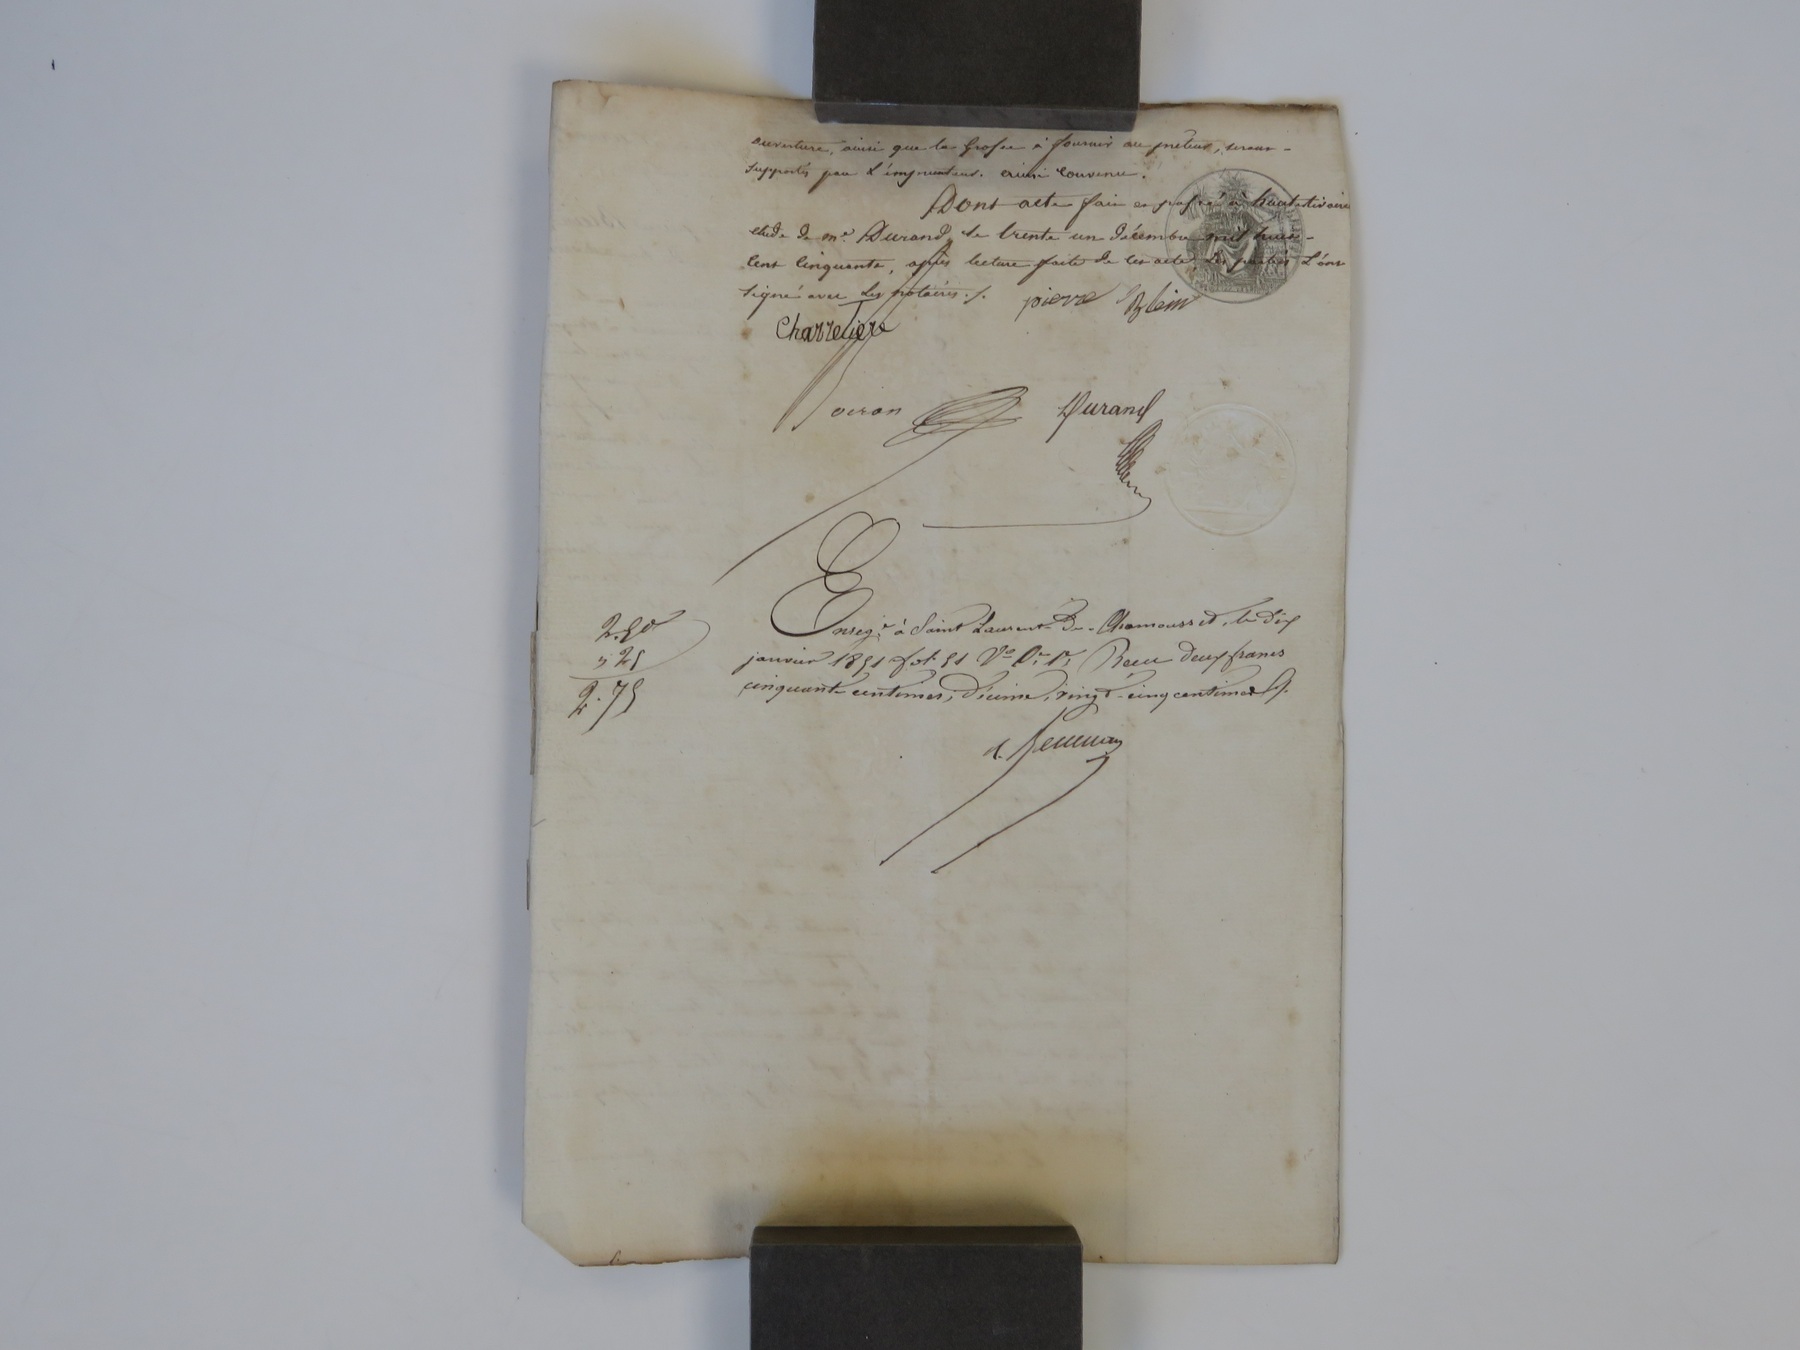 ouverture, ainsi que la Grosse à fournir au prêteur, seront
supportés par l'emprunteur. ainsi convenu.
Dont acte fait et passé à hauterivoire
étude de me. Durand, le trente un décembre mil huit
cent cinquante, après lecture faite de cet acte, les parties l'ont
signé avec les notaires ./. pierre Blein
Charretiere
Voiron Durand
Enregé. à Saint Laurent De Chamousset, le dix
2.50
janvier 1851 fol. 51 Vo. Cre. 1re. Reçu deux francs
" 25
cinquante centimes, décime, vingt-cinq centimes
2.75